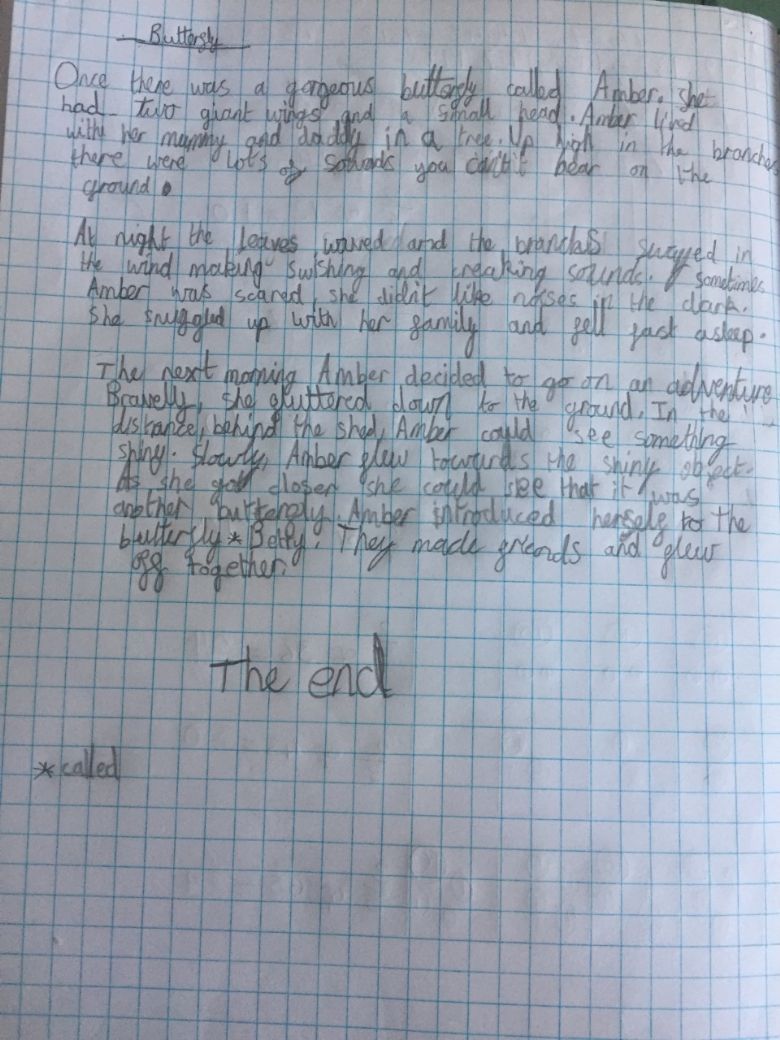 Butterfly
Once there was a gorgeous butterfly called Amber. she
had two giant wings and a small head. Amber livd
with her mummy and daddy in a tree. Up high in the branches
there were lots of sounds you can't hear on the
ground.
At night the leaves waved and the branches swayed in
the wind making swishing and creaking sounds. sometimes
Amber was scared, she didn't like noises in the dark.
She snuggled up with her family and fell fast asleep.
The next morning Amber decided to go on an adventure
Bravelly, she fluttered down to the ground. In the
distance, behind the shed, Amber could see something
shiny. Slowly, Amber flew towards the shiny object.
As she got closer she could see that it was
another butterfly. Amber introduced herself to the
butterfly * Betty. They made friends and flew
off together.
The end
*called